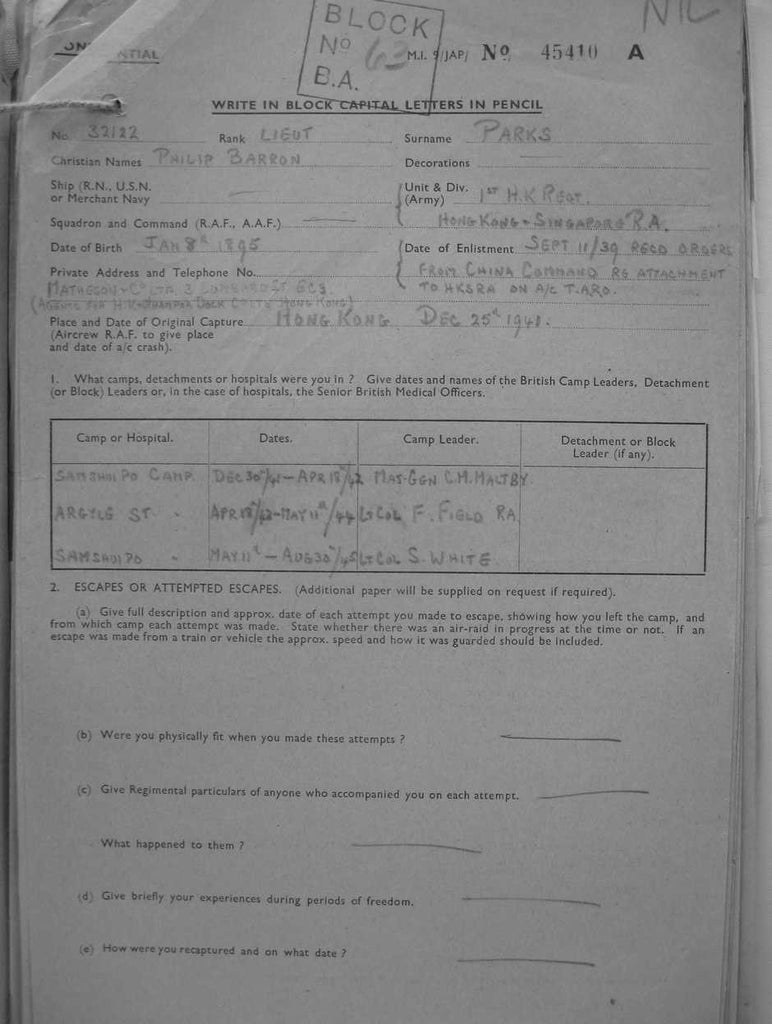 NIL
BLOCK
No 63
B.A.
M.I. 9/JAP/ No 45410 A
WRITE IN BLOCK CAPITAL LETTERS IN PENCIL
No. 32122 Rank LIEUT Surname PARKS
Christian Names PHILIP BARRON Decorations
Ship (R.N., U.S.N. or Merchant Navy
Unit & Div. (Army) 1ST H.K REGT.
HONG KONG & SINGAPORE R.A.
Squadron and Command (R.A.F., A.A.F.)
Date of Birth JAN 8th 1895 Date of Enlistment SEPT 11/39 RECD ORDERS
Private Address and Telephone No. FROM CHINA COMMAND RE ATTACHMENT
MATHESON & Co LTD 3 LOMBARD ST EC3 TO HKSRA ON A/C T.ARO.
Place and Date of Original Capture HONG KONG DEC 25th 1941.
(Aircrew R.A.F. to give place
and date of a/c crash).
1. What camps, detachments or hospitals were you in ? Give dates and names of the British Camp Leaders, Detachment
(or Block) Leaders or, in the case of hospitals, the Senior British Medical Officers.
Camp or Hospital. Dates. Camp Leader. Detachment or Block Leader (if any).
SAMSHUI PO CAMP. DEC 30th/41 – APR 18th/42 MAJ-GEN C.M. MALTBY.
ARGYLE ST. " APR 18th/42–MAY 11th/44 Lt COL F. FIELD RA
SAMSHUI PO " MAY 11th – AUG 30th/45 LT COL S. WHITE
2. ESCAPES OR ATTEMPTED ESCAPES. (Additional paper will be supplied on request if required).
(a) Give full description and approx. date of each attempt you made to escape, showing how you left the camp, and
from which camp each attempt was made. State whether there was an air-raid in progress at the time or not. If an
escape was made from a train or vehicle the approx. speed and how it was guarded should be included.
(b) Were you physically fit when you made these attempts ?
(c) Give Regimental particulars of anyone who accompanied you on each attempt.
What happened to them ?
(d) Give briefly your experiences during periods of freedom.
(e) How were you recaptured and on what date ?